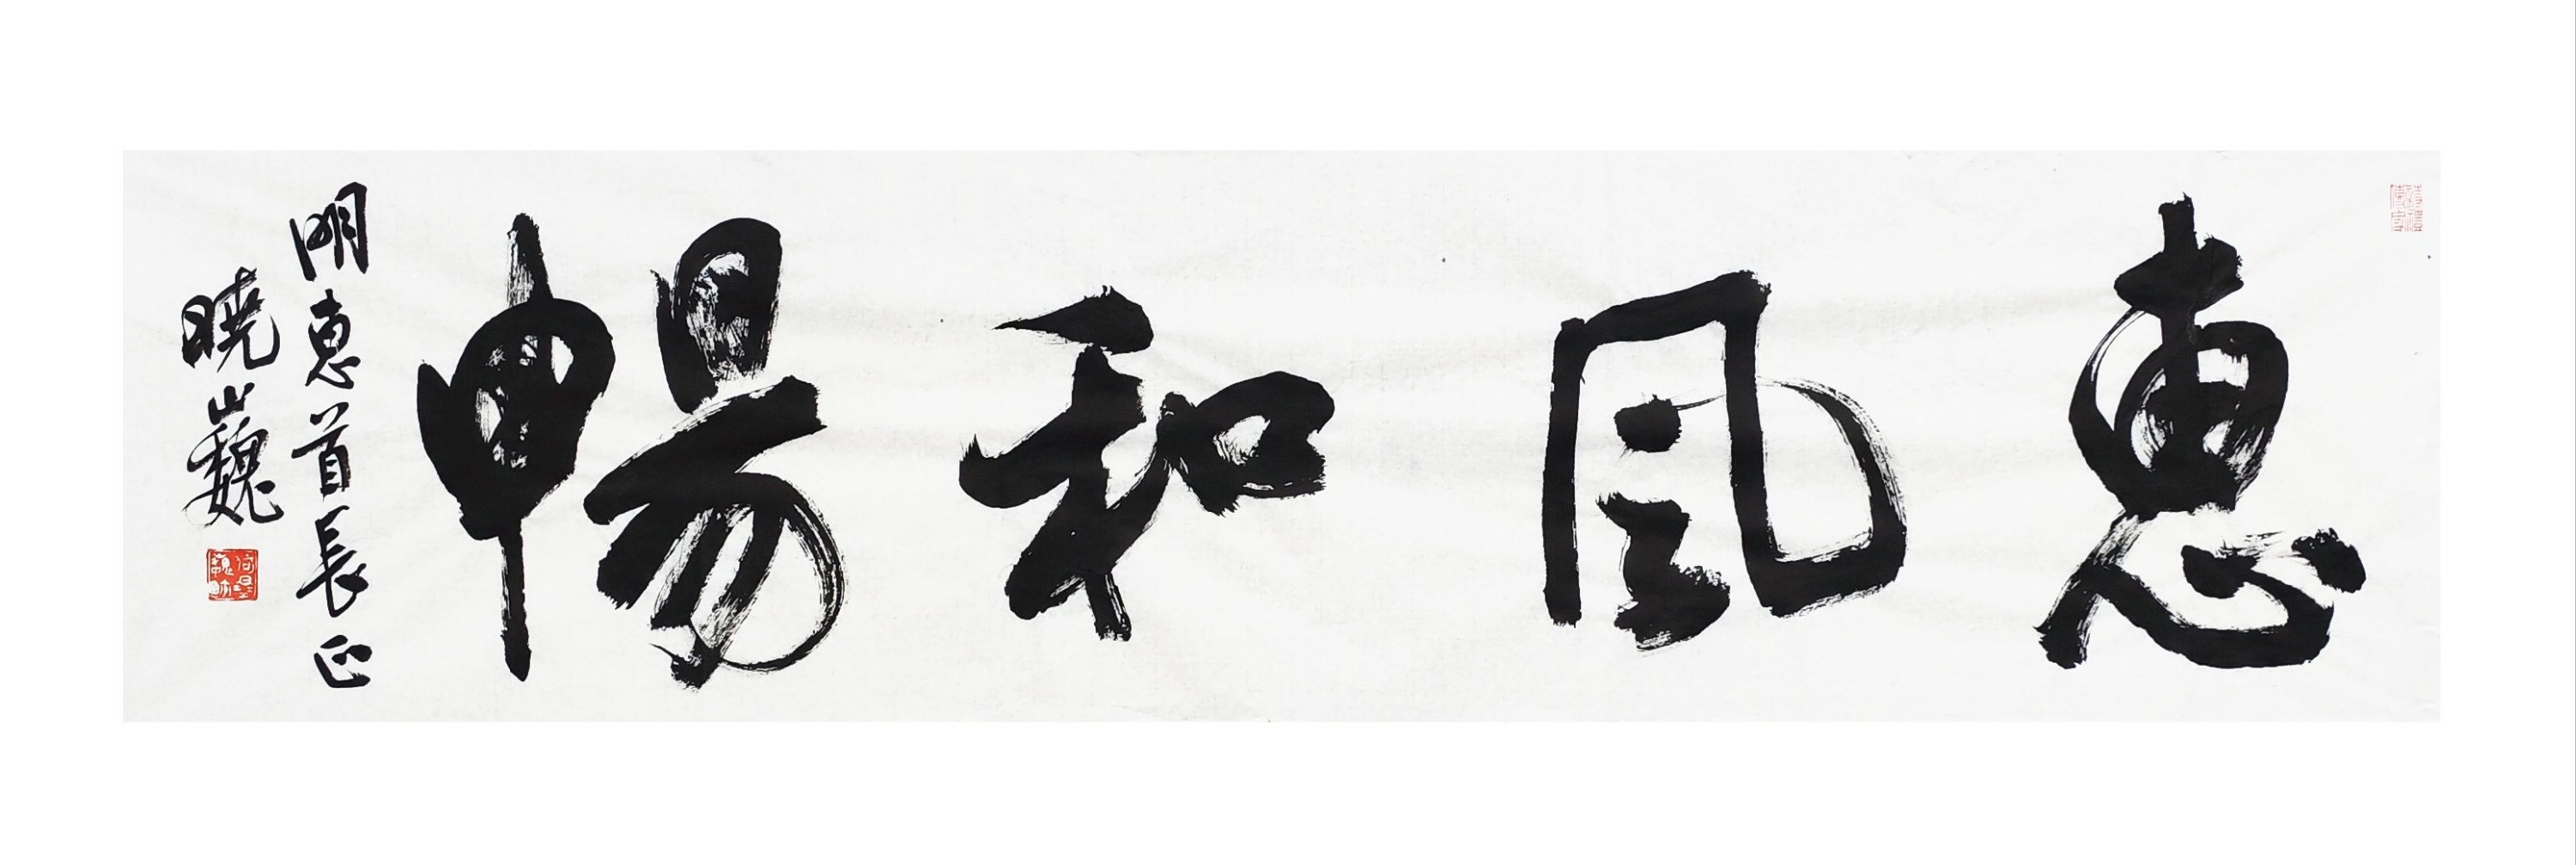 惠風和暢
明惠首長正
曉巍